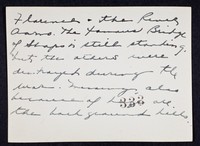 Florence & the River
Arno. The famous Bridge
of Shops is still standing
but the others were
destroyed during the
war. Missing also
because of are
the background hills.
333